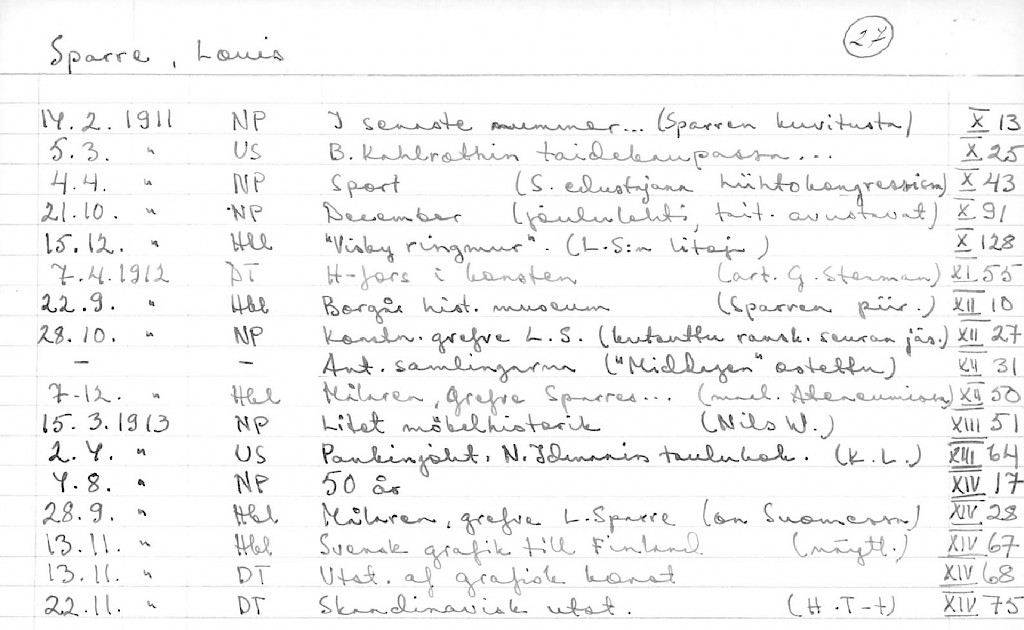 27
Sparre, Louis
14.2.1911 NP I senaste nummer... (Sparren kuvitusta) X 13
5.3. " US B. Kahlrothin taidekaupassa... X 25
4.4. " NP Sport (S. edustajana hiihtokongressissa) X 43
21.10. " NP December (joululehti, tait. avustavat) X 91
15.12. " Hbl "Visby ringmur". (L.S:n ) X 128
7.4.1912 DT H-fors i konsten (art. G. Stenman) XI 55
22.9. " Hbl Borgå hist. museum (Sparren piir.) XII 10
28.10. " NP Konstn. grefve L.S. (kutsuttu ransk. seuran jäs.) XII 27
– – Ant. samlingarna ("Middagen" ostettu) XII 31
7.12. " Hbl Målaren, grefve Sparres... (maal. Ateneumissa) XII 50
15.3.1913 NP Litet möbelhistorik (Nils W.) XIII 51
2.4. " US Pankinjoht. N. Idmanin taulukok. (K.L.) XIII 64
4.8. " NP 50 år XIV 17
28.9. " Hbl Målaren, grefve L. Sparre (on Suomessa) XIV 28
13.11. " Hbl Svensk grafik till Finland (näytt.) XIV 67
13.11. " DT Utst. af grafisk konst XIV 68
22.11. " DT Skandinavisk utst. (H.T-t) XIV 75